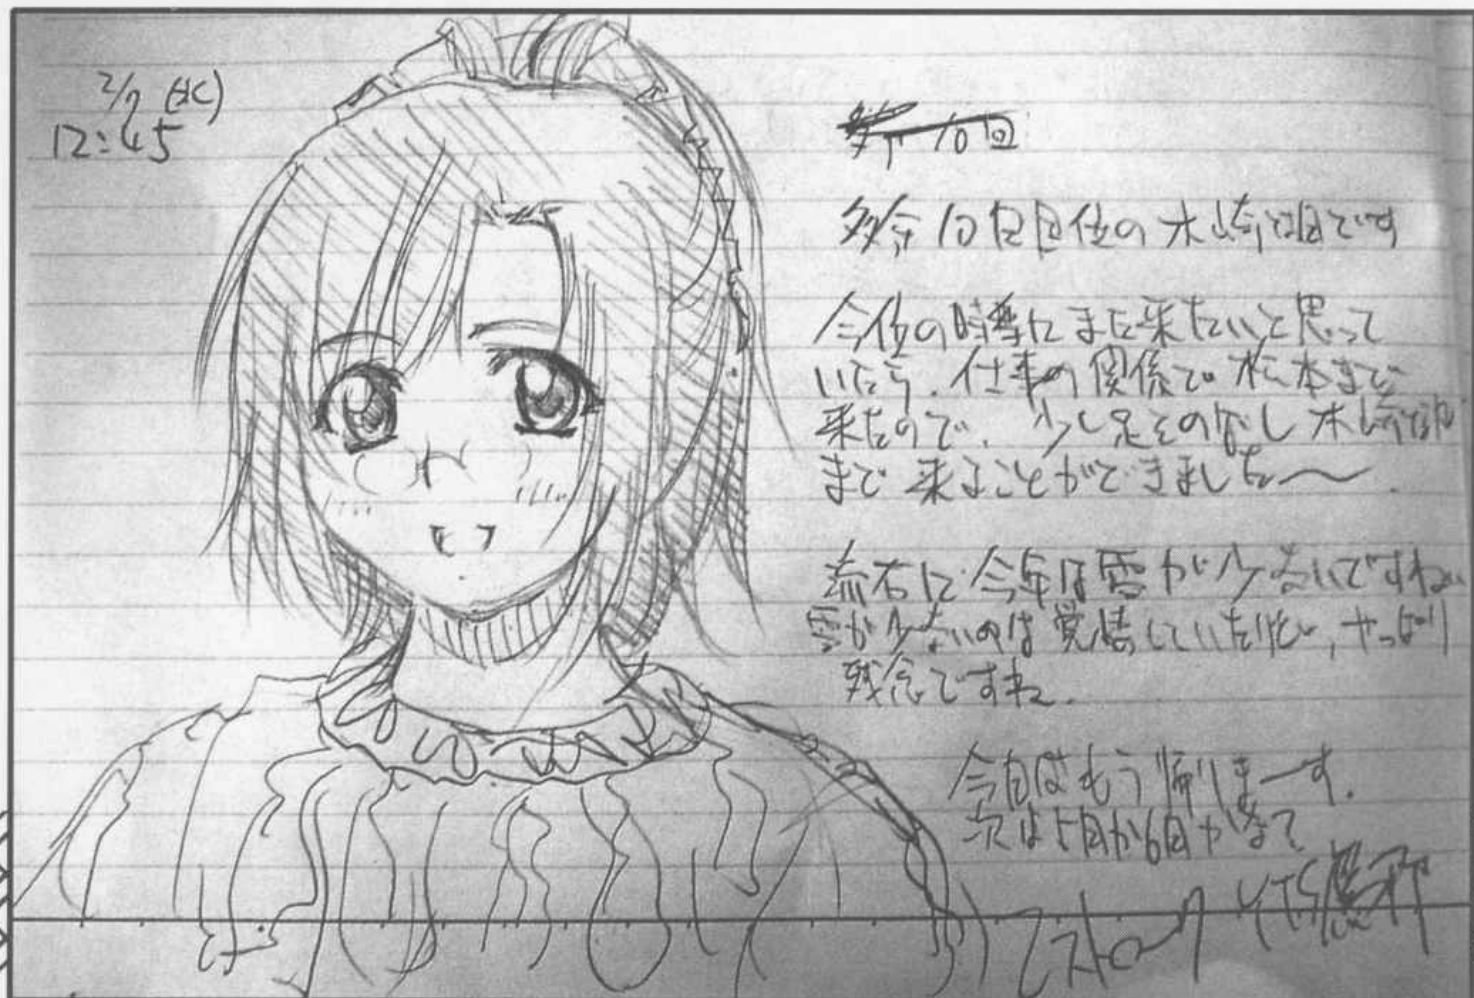 2/7 (水)
12:45
第10回
多分10回目位の木崎湖です
今位の時季にまた来たいと思って
いたら、仕事の関係で松本まで
来たので、少し足をのばし木崎湖
まで来ることができました〜.
流石に今年は雪が少ないですねぃ
雪が少ないのは覚悟していたけど、やっぱり
残念ですね.
今日はもう帰りまーす.
次は5月か6月かなぁ